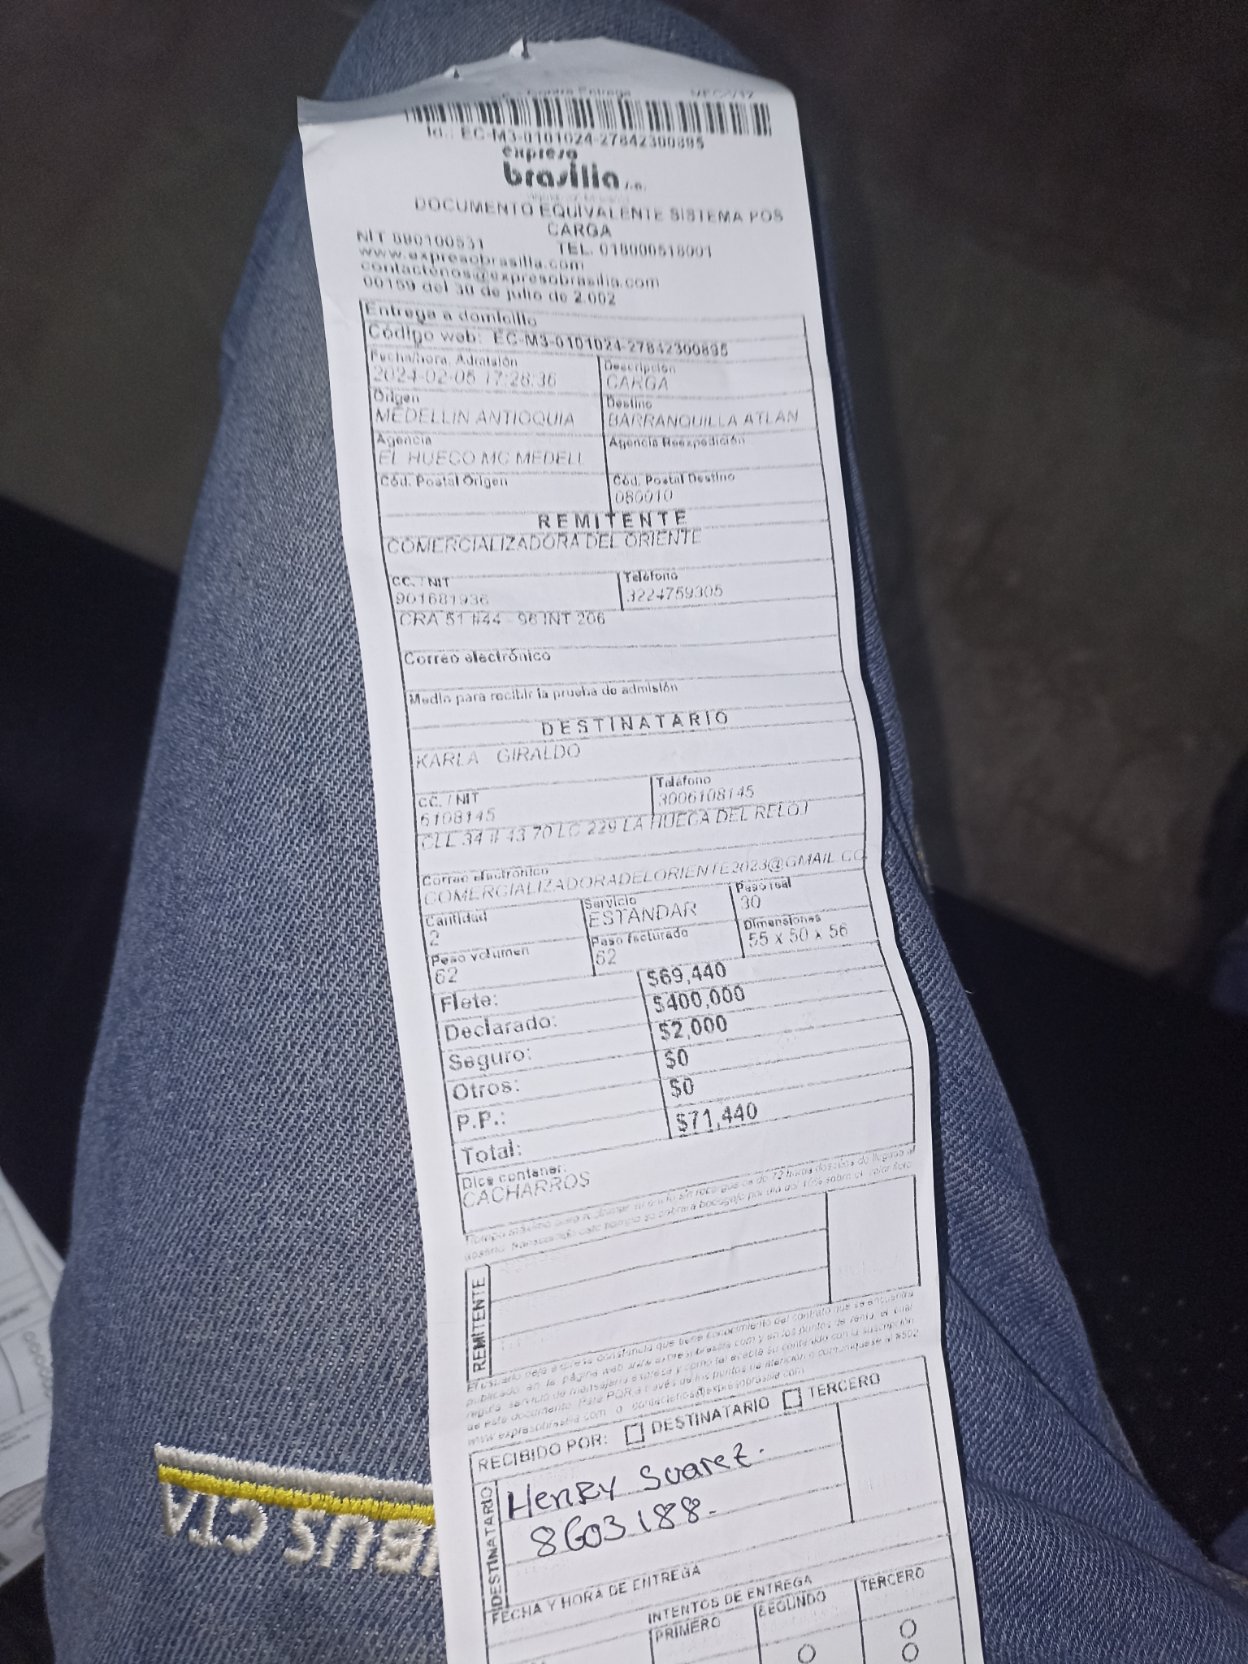 Id.: EC-M3-0101024-27842300895
expreso
brasilia s.a.
DOCUMENTO EQUIVALENTE SISTEMA POS
CARGA
NIT 890100531 TEL. 018000518001
www.expresobrasilia.com
contactenos@expresobrasilia.com
00159 del 30 de julio de 2.002
Entrega a domicilio
Código web: EC-M3-0101024-27842300895
Fecha/hora. Admisión Descripción
2024-02-05 17:28:36 CARGA
Origen Destino
MEDELLIN ANTIOQUIA BARRANQUILLA ATLAN
Agencia Agencia Reexpedición
EL HUECO MC MEDELL
Cód. Postal Origen Cód. Postal Destino
080010
REMITENTE
COMERCIALIZADORA DEL ORIENTE
CC. / NIT Teléfono
901681936 3224759305
CRA 51 #44 - 96 INT 206
Correo electrónico
Medio para recibir la prueba de admisión
DESTINATARIO
KARLA GIRALDO
CC. / NIT Teléfono
6108145 3006108145
CLL 34 # 43 70 LC 229 LA HUECA DEL RELOJ
Correo electrónico
COMERCIALIZADORADELORIENTE2023@GMAIL.CO
Cantidad Servicio Peso real
2 ESTANDAR 30
Peso volumen Peso facturado Dimensiones
62 62 55 x 50 x 56
Flete: $69,440
Declarado: $400,000
Seguro: $2,000
Otros: $0
P.P.: $0
Total: $71,440
Dice contener:
CACHARROS
REMITENTE
RECIBIDO POR: DESTINATARIO TERCERO
DESTINATARIO
Henry Suarez.
8603188.
FECHA Y HORA DE ENTREGA
INTENTOS DE ENTREGA
PRIMERO SEGUNDO TERCERO
IBUS CTA